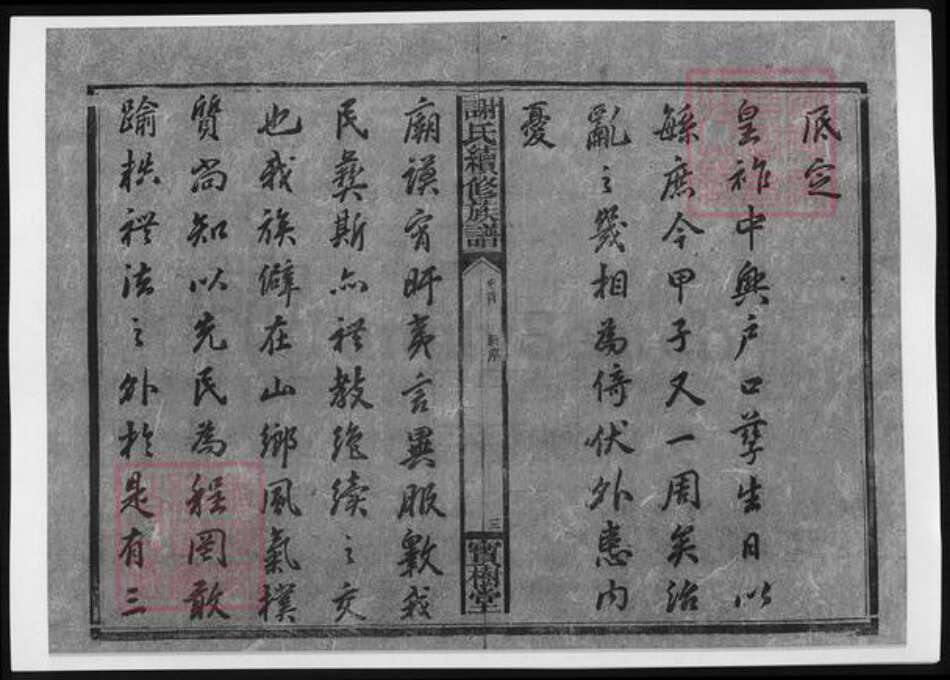 底定
皇祚中興戶口孳生日以
緐庶今甲子又一周矣治
亂之幾相為倚伏外患内
憂
謝氏續修族譜
卷首 新序
三
寶樹堂
廟謨宵旰夷言異服斁我
民彝斯亦禮教絶續之交
也我族僻在山鄉風氣樸
質尚知以先民為程罔敢
踰軼禮法之外於是有三